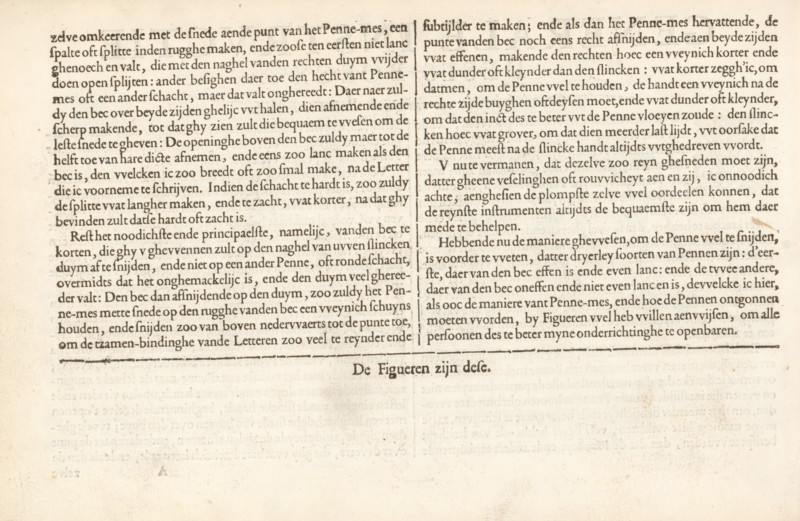 zelve omkeerende met de snede aende punt van het Penne-mes, een
spalte oft splitte inden rugghe maken, ende zoose ten eersten niet lanc
ghenoech en valt, die met den naghel vanden rechten duym vvijder
doen open splijten: ander besighen daer toe den hecht vant Penne-
mes oft een ander schacht, maer dat valt onghereedt: Daer naer zul-
dy den bec over beyde zijden ghelijc vvt halen, dien afnemende ende
scherp makende, tot dat ghy zien zult die bequaem te vvesen om de
leste snede te gheven: De openinghe boven den bec zuldy maer tot de
helft toe van hare dicte afnemen, ende eens zoo lanc maken als den
bec is, den vvelcken ic zoo breedt oft zoo smal make, na de Letter
die ic voorneme te schrijven. Indien de schacht te hardt is, zoo zuldy
de splitte vvat langher maken, ende te zacht, vvat korter, na dat ghy
bevinden zult datse hardt oft zacht is.
Rest het noodichste ende principaelste, namelijc, vanden bec te
korten, die ghy vghevvennen zult op den naghel van uvven slincken
duym af te snijden, ende niet op een ander Penne, oft ronde schacht,
overmidts dat het onghemackelijc is, ende den duym veel gheree-
der valt: Den bec dan affnijdende op den duym, zoo zuldy het Pen-
ne-mes mette snede op den rugghe vanden bec een vveynich schuyns
houden, ende snijden zoo van boven nedervvaerts tot de punte toe,
om de tzamen-bindinghe vande Letteren zoo veel te reynder ende
subtijlder te maken; ende als dan het Penne-mes hervattende, de
punte vanden bec noch eens recht affnijden, ende aen beyde zijden
vvat effenen, makende den rechten hoec een vveynich korter ende
vvat dunder oft kleynder dan den slincken: vvat korter zeggh'ic, om
datmen, om de Penne vvel te houden, de handt een vveynich na de
rechte zijde buyghen oft deysen moet, ende vvat dunder oft kleynder,
om dat den inct des te beter vvt de Penne vloeyen zoude: den slinc-
ken hoec vvat grover, om dat dien meerder last lijdt, vvt oorsake dat
de Penne meest na de slincke handt altijdts vvtghedreven vvordt.
V nu te vermanen, dat dezelve zoo reyn ghesneden moet zijn,
datter gheene veselinghen oft rouvvicheyt aen en zij, ic onnoodich
achte, aenghesien de plompste zelve vvel oordeelen konnen, dat
de reynste instrumenten altijdts de bequaemste zijn om hem daer
mede te behelpen.
Hebbende nu de maniere ghevvesen, om de Penne vvel te snijden,
is voorder te vveten, datter dryerley soorten van Pennen zijn: d'eer-
ste, daer van den bec effen is ende even lanc: ende de tvvee andere,
daer van den bec oneffen ende niet even lanc en is, devvelcke ic hier,
als ooc de maniere vant Penne-mes, ende hoe de Pennen ontgonnen
moeten vvorden, by Figueren vvel heb vvillen aenvvijsen, om alle
persoonen des te beter myne onderrichtinghe te openbaren.
De Figueren zijn dese.